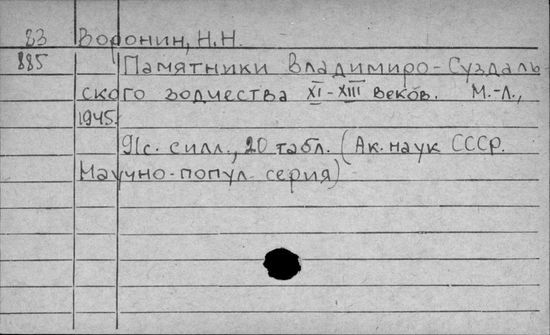 83 Воронин, Н.Н.
885 Памятники Владимиро-Суздаль-
ского зодчества XI-XIII веков. М.-Л.,
1945.
91с. силл., 20 табл. (Ак. наук СССР.
Научно-попул. серия)